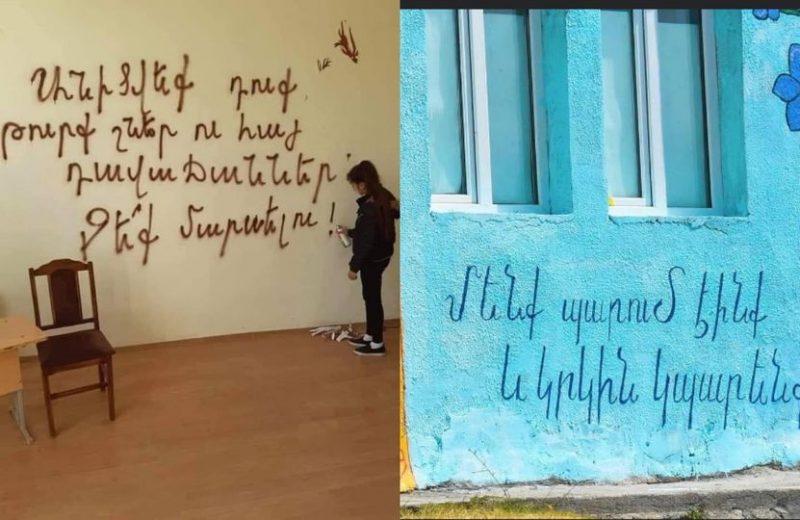 Անիծվեք դուք
թուրք շներ ու հայ
դավաճաններ
Չե՛ք մարսելու!
Մենք պարում էինք
և կրկին կպարենք